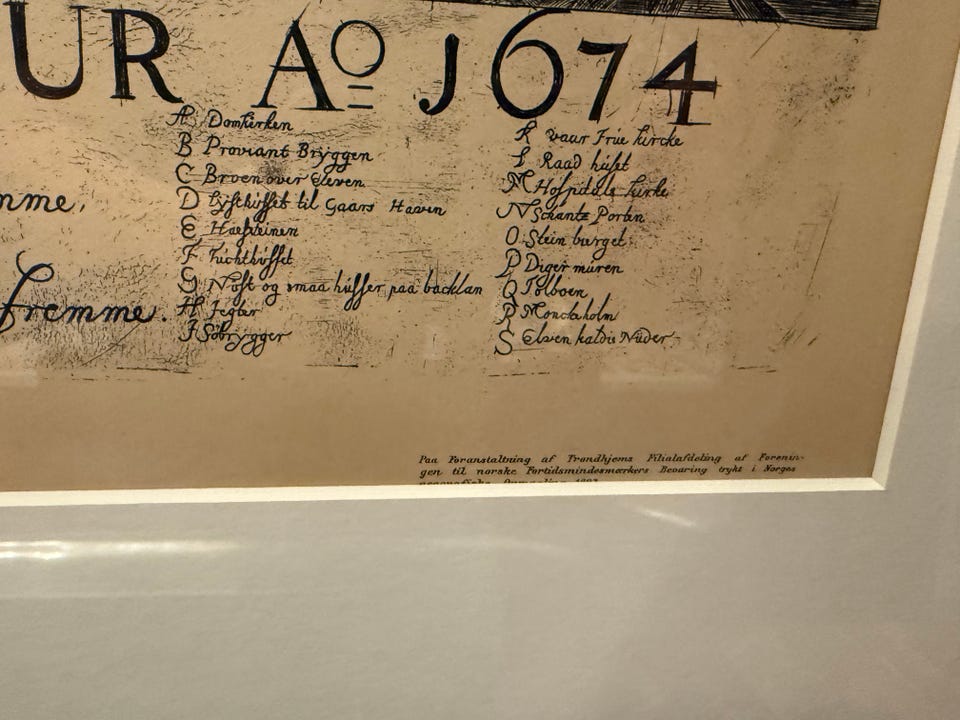 UR Aº J674
A Domkirken
B Proviant Bryggen
C Broen over Eleven
D Lysthusset til Gaars Haven
E Haefsteinen
F Tuchthusset
G Nöst og smaa husser paa backlan
H Jegter
J Söbrygger
mme,
fremme.
K vaar Frue kircke
L Raad huset
M Hospitals kirke
N Schantz Porten
O Stein berget
P Diger muren
Q Tolboen
R Monckholm
S Elven kaldis Nider
Paa Foranstaltning af Trondhjems Filialafdeling af Forenin-
gen til norske Fortidsmindesmærkers Bevaring trykt i Norges